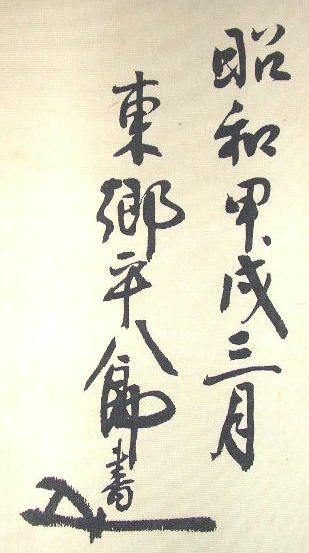 昭和甲戌三月
東郷平八郎書